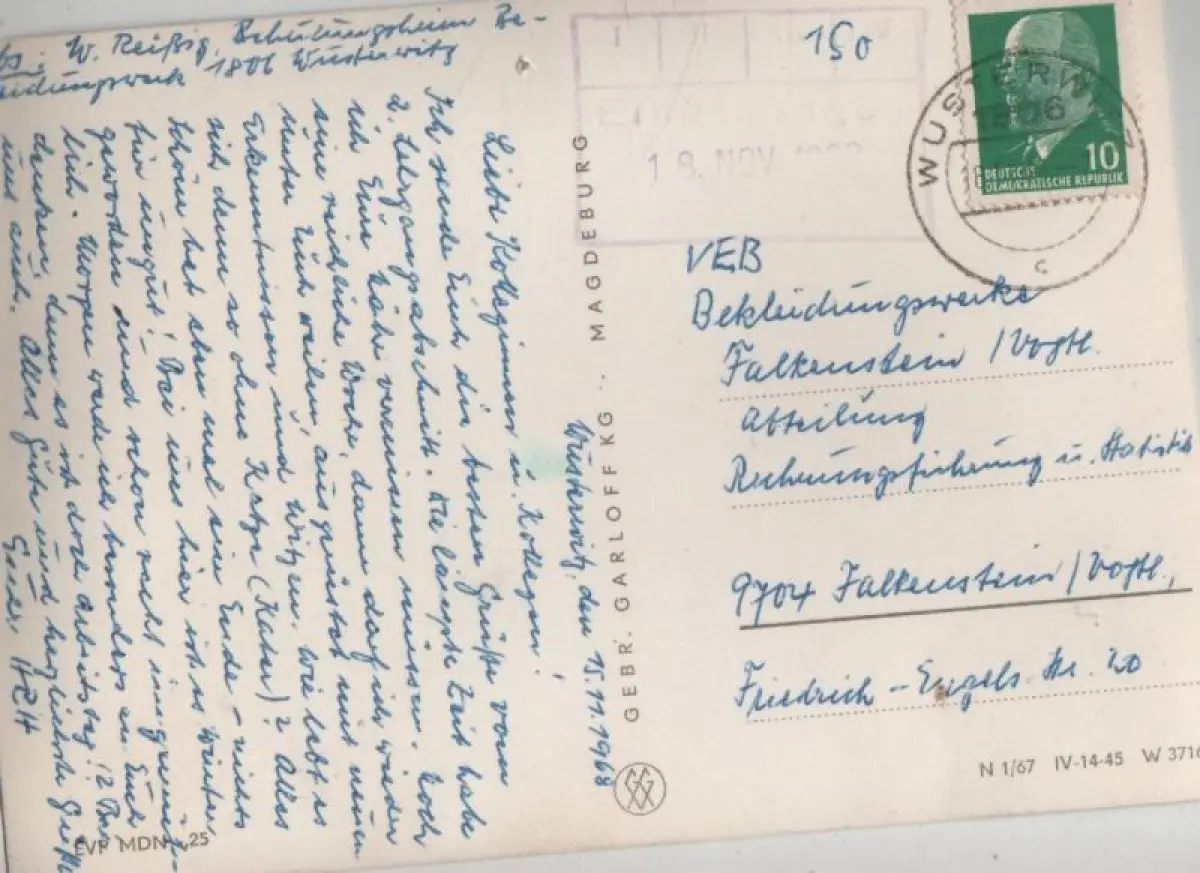 Abs.: W. Reißig, Schulungsheim Be-
kleidungswerk 1801 Wusterwitz
Wusterwitz, den 15.11.1968
Liebe Kolleginnen u. Kollegen!
Ich sende Euch die besten Grüße vom
2. Lehrgangsabschnitt. Die längste Zeit habe
ich Eure Nähe vermissen müssen. Noch
eine reichliche Woche, dann darf ich wieder
unter Euch weilen, ausgerüstet mit neuen
Erkenntnissen und Witzen. Wie lebt es
sich denn so ohne Katze (Kater)? Alles
Schöne hat eben mal sein Ende – nichts
für ungut! Bei uns hier ist es Winter
geworden und schon recht ungemüt-
lich. Morgen werde ich besonders an Euch
denken, denn es ist doch Arbeitstag!!
und auch. Alles Gute und herzlichste Grüße
Euer
GEBR. GARLOFF KG., MAGDEBURG
EVP MDN -,25
150
18. NOV
10
DEUTSCHE
DEMOKRATISCHE REPUBLIK
WUSTERWITZ
1806
c
VEB
Bekleidungswerke
Falkenstein / Vogtl.
Abteilung
Rechnungsführung u. Statistik
9704 Falkenstein / Vogtl.,
Friedrich-Engels-Str. 20
N 1/67 IV-14-45 W 3716